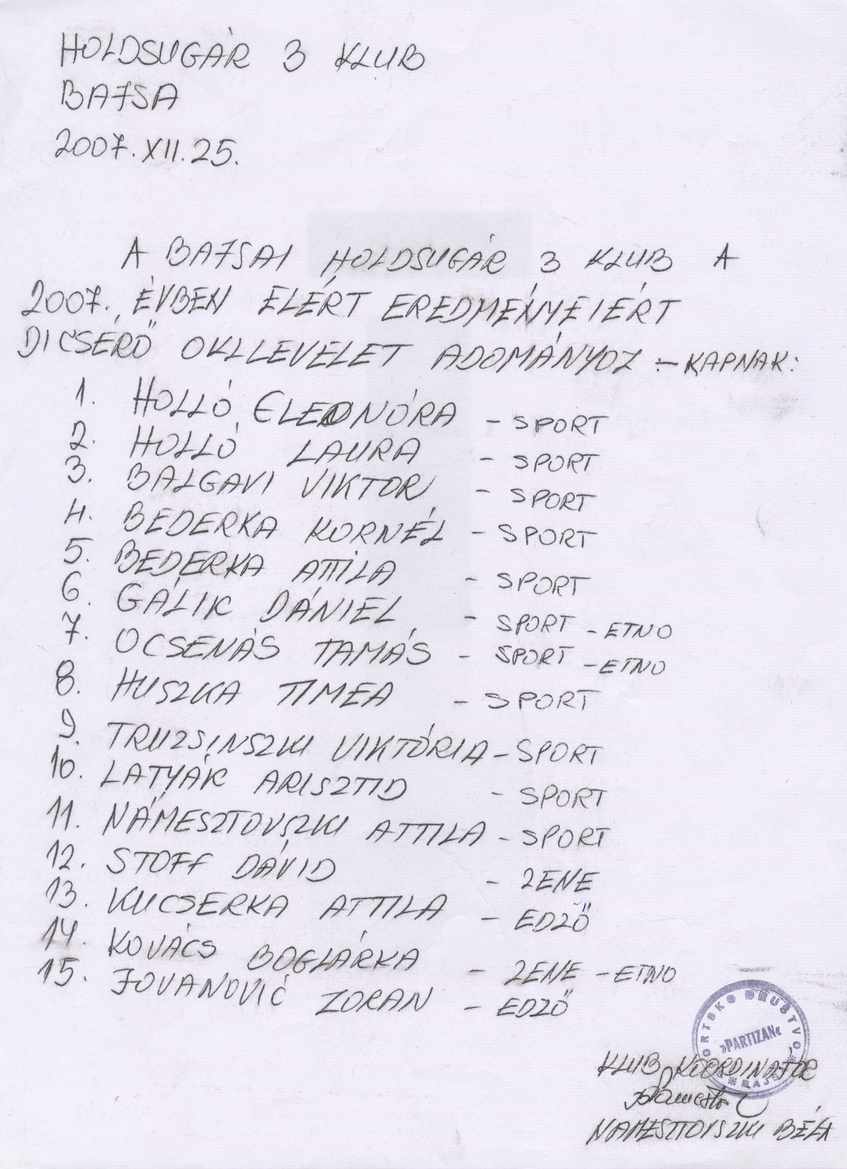 HOLDSUGÁR 3 KLUB
BAJSA
2007. XII. 25.
A BAJSAI HOLDSUGÁR 3 KLUB A
2007. ÉVBEN ELÉRT EREDMÉNYEIÉRT
DICSÉRŐ OKLLEVELET ADOMÁNYOZ :- KAPNAK:
1. HOLLÓ ELEONÓRA - SPORT
2. HOLLÓ LAURA - SPORT
3. BALGAVI VIKTOR - SPORT
4. BEDERKA KORNÉL - SPORT
5. BEDERKA ATTILA - SPORT
6. GÁLIK DÁNIEL - SPORT - ETNO
7. OCSENÁS TAMÁS - SPORT - ETNO
8. HUSZKA TIMEA - SPORT
9. TRUZSINSZKI VIKTÓRIA - SPORT
10. LATYÁK ARISZTID - SPORT
11. NÁMESZTOVSZKI ATTILA - SPORT
12. STOFF DÁVID - ZENE
13. KUCSERKA ATTILA - EDZŐ
14. KOVÁCS BOGLÁRKA - ZENE - ETNO
15. JOVANOVIĆ ZORAN - EDZŐ
ORTSKO DRUŠTVO
»PARTIZAN«
KLUB KOORDINÁTOR
NAMESZTOVSZKI BÉLA